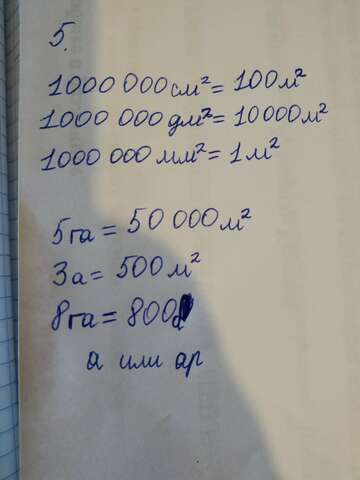 5.
1000 000 см² = 100 м²
1000 000 дм² = 10000 м²
1000 000 мм² = 1 м²
5 га = 50 000 м²
3 а = 500 м²
8 га = 800
а или ар